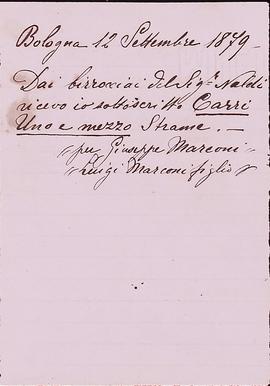 Bologna 12 Settembre 1879 -
Dai birrocciai del Sigr. Naldi
ricevo io sottoscritto Carri
Uno e mezzo Strame. -
"per Giuseppe Marconi -
"Luigi Marconi figlio"